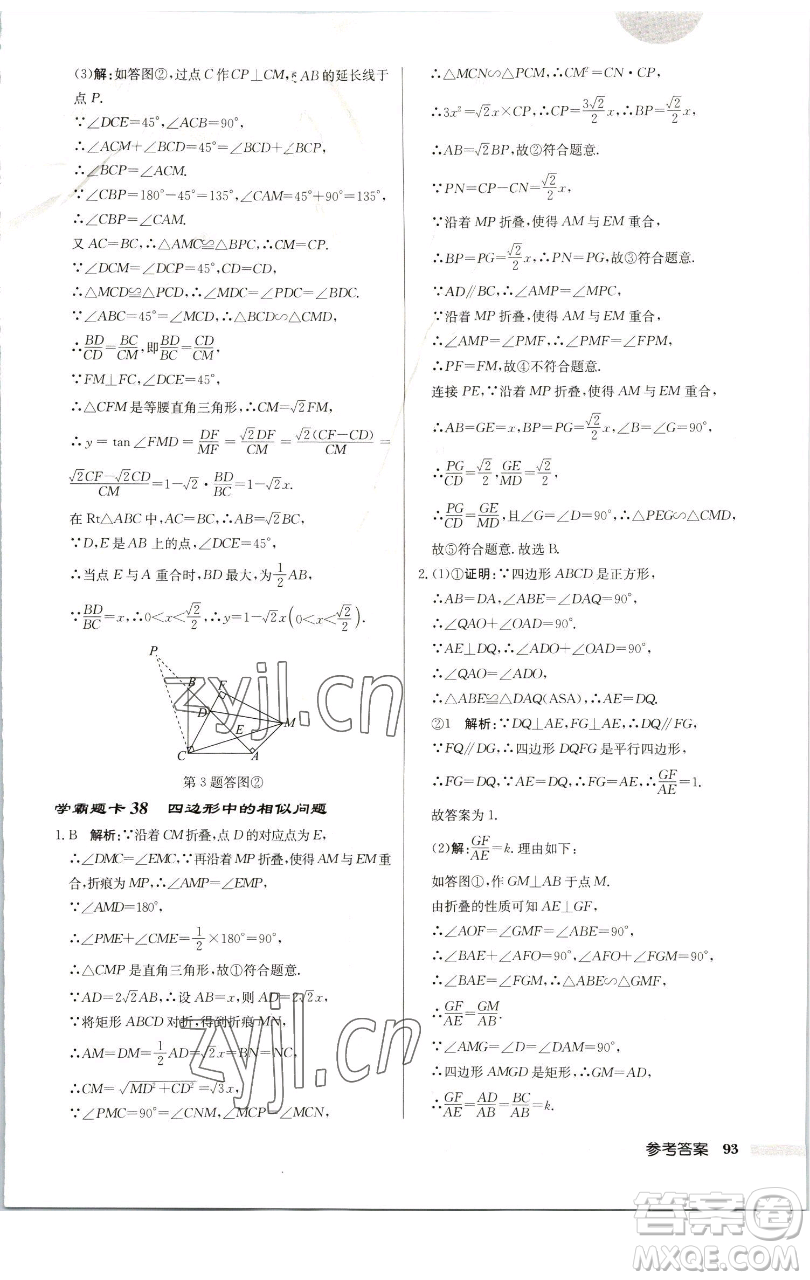 (3)解:如答图②,过点C作CP⊥CM,交AB的延长线于
点P.
∵∠DCE=45°,∠ACB=90°,
∴∠ACM+∠BCD=45°=∠BCD+∠BCP,
∴∠BCP=∠ACM.
∵∠CBP=180°-45°=135°,∠CAM=45°+90°=135°,
∴∠CBP=∠CAM.
又AC=BC,∴△AMC≌△BPC,∴CM=CP.
∵∠DCM=∠DCP=45°,CD=CD,
∴△MCD≌△PCD,∴∠MDC=∠PDC=∠BDC.
∵∠ABC=45°=∠MCD,∴△BCD∽△CMD,
∴BD/CD=BC/CM,即BD/BC=CD/CM.
∵FM⊥FC,∴∠DFM=90°,
∴△CFM是等腰直角三角形,∴CM=√2FM,
∴y=tan∠FMD=DF/MF=√2DF/CM=√2(CF-CD)/CM=
(√2CF-√2CD)/CM=1-√2·BD/BC=1-√2x.
在Rt△ABC中,AC=BC,∴AB=√2BC,
∵D,E是AB上的点,∠DCE=45°,
∴当点E与A重合时,BD最大,为1/2AB,
∵BD/BC=x,∴0<x<√2/2,∴y=1-√2x(0<x<√2/2).
P
B
F
D
E
M
C
A
第3题答图②
学霸题卡38 四边形中的相似问题
1.B 解析:∵沿着CM折叠,点D的对应点为E,
∴∠DMC=∠EMC,∵再沿着MP折叠,使得AM与EM重
合,折痕为MP,∴∠AMP=∠EMP,
∵∠AMD=180°,
∴∠PME+∠CME=1/2×180°=90°,
∴△CMP是直角三角形,故①符合题意.
∵AD=2√2AB,∴设AB=x,则AD=2√2x,
∵将矩形ABCD对折,得到折痕MN,
∴AM=DM=1/2AD=√2x=BN=NC,
∴CM=√(MD²+CD²)=√3x.
∵∠PMC=90°=∠CNM,∠MCP=∠MCN,
∴△MCN∽△PCM,∴CM²=CN·CP,
∴3x²=√2x×CP,∴CP=3√2/2x,∴BP=√2/2x,
∴AB=√2BP,故②符合题意.
∵PN=CP-CN=√2/2x,
∵沿着MP折叠,使得AM与EM重合,
∴BP=PG=√2/2x,∴PN=PG,故③符合题意.
∵AD∥BC,∴∠AMP=∠MPC,
∵沿着MP折叠,使得AM与EM重合,
∴∠AMP=∠PMF,∴∠PMF=∠FPM,
∴PF=FM,故④不符合题意.
连接PE,∵沿着MP折叠,使得AM与EM重合,
∴AB=GE=x,BP=PG=√2/2x,∠B=∠G=90°,
∴PG/CD=√2/2,GE/MD=√2/2,
∴PG/CD=GE/MD,且∠G=∠D=90°,∴△PEG∽△CMD,
故⑤符合题意.故选B.
2.(1)①证明:∵四边形ABCD是正方形,
∴AB=DA,∠ABE=∠DAQ=90°,
∴∠QAO+∠OAD=90°.
∵AE⊥DQ,∴∠ADO+∠OAD=90°,
∴∠QAO=∠ADO,
∴△ABE≌△DAQ(ASA),∴AE=DQ.
②1 解析:∵DQ⊥AE,FG⊥AE,∴DQ∥FG,
∵FQ∥DG,∴四边形DQFG是平行四边形,
∴FG=DQ,∵AE=DQ,∴FG=AE,∴GF/AE=1.
故答案为1.
(2)解:GF/AE=k.理由如下:
如答图①,作GM⊥AB于点M.
由折叠的性质可知AE⊥GF,
∴∠AOF=∠GMF=∠ABE=90°,
∴∠BAE+∠AFO=90°,∠AFO+∠FGM=90°,
∴∠BAE=∠FGM,∴△ABE∽△GMF,
∴GF/AE=GM/AB.
∵∠AMG=∠D=∠DAM=90°,
∴四边形AMGD是矩形,∴GM=AD,
∴GF/AE=AD/AB=BC/AB=k.
参考答案 93
zyjl.cn
zyjl.cn
答案圈
MXQE.COM